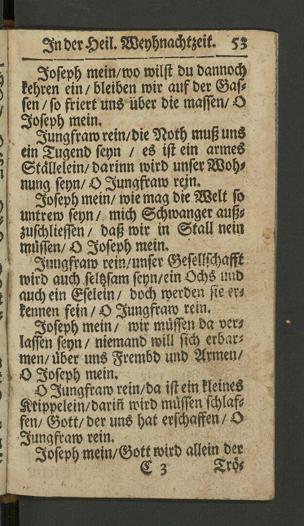 In der Heil. Weyhnachtzeit. 53
Joseph mein/wo wilst du dannoch
kehren ein/ bleiben wir auf der Gas-
sen/ so friert uns über die massen/ O
Joseph mein.
Jungfraw rein/die Noth muß uns
ein Tugend seyn / es ist ein armes
Ställelein/ darinn wird unser Woh-
nung seyn/ O Jungfraw rein.
Joseph mein/ wie mag die Welt so
untrew seyn/ mich Schwanger auß-
zuschliessen/ daß wir in Stall nein
müssen/ O Joseph mein.
Jungfraw rein/unser Gesellschafft
wird auch seltzsam seyn/ein Ochs und
auch ein Eselein/ doch werden sie er-
kennen fein/ O Jungfraw rein.
Joseph mein/ wir müssen da ver-
lassen seyn/ niemand will sich erbar-
men/über uns Frembd und Armen/
O Joseph mein.
O Jungfraw rein/da ist ein kleines
Krippelein/darin̄ wird müssen schlaf-
fen/Gott/ der uns hat erschaffen/ O
Jungfraw rein.
Joseph mein/Gott wird allein der
C 3 Trö-